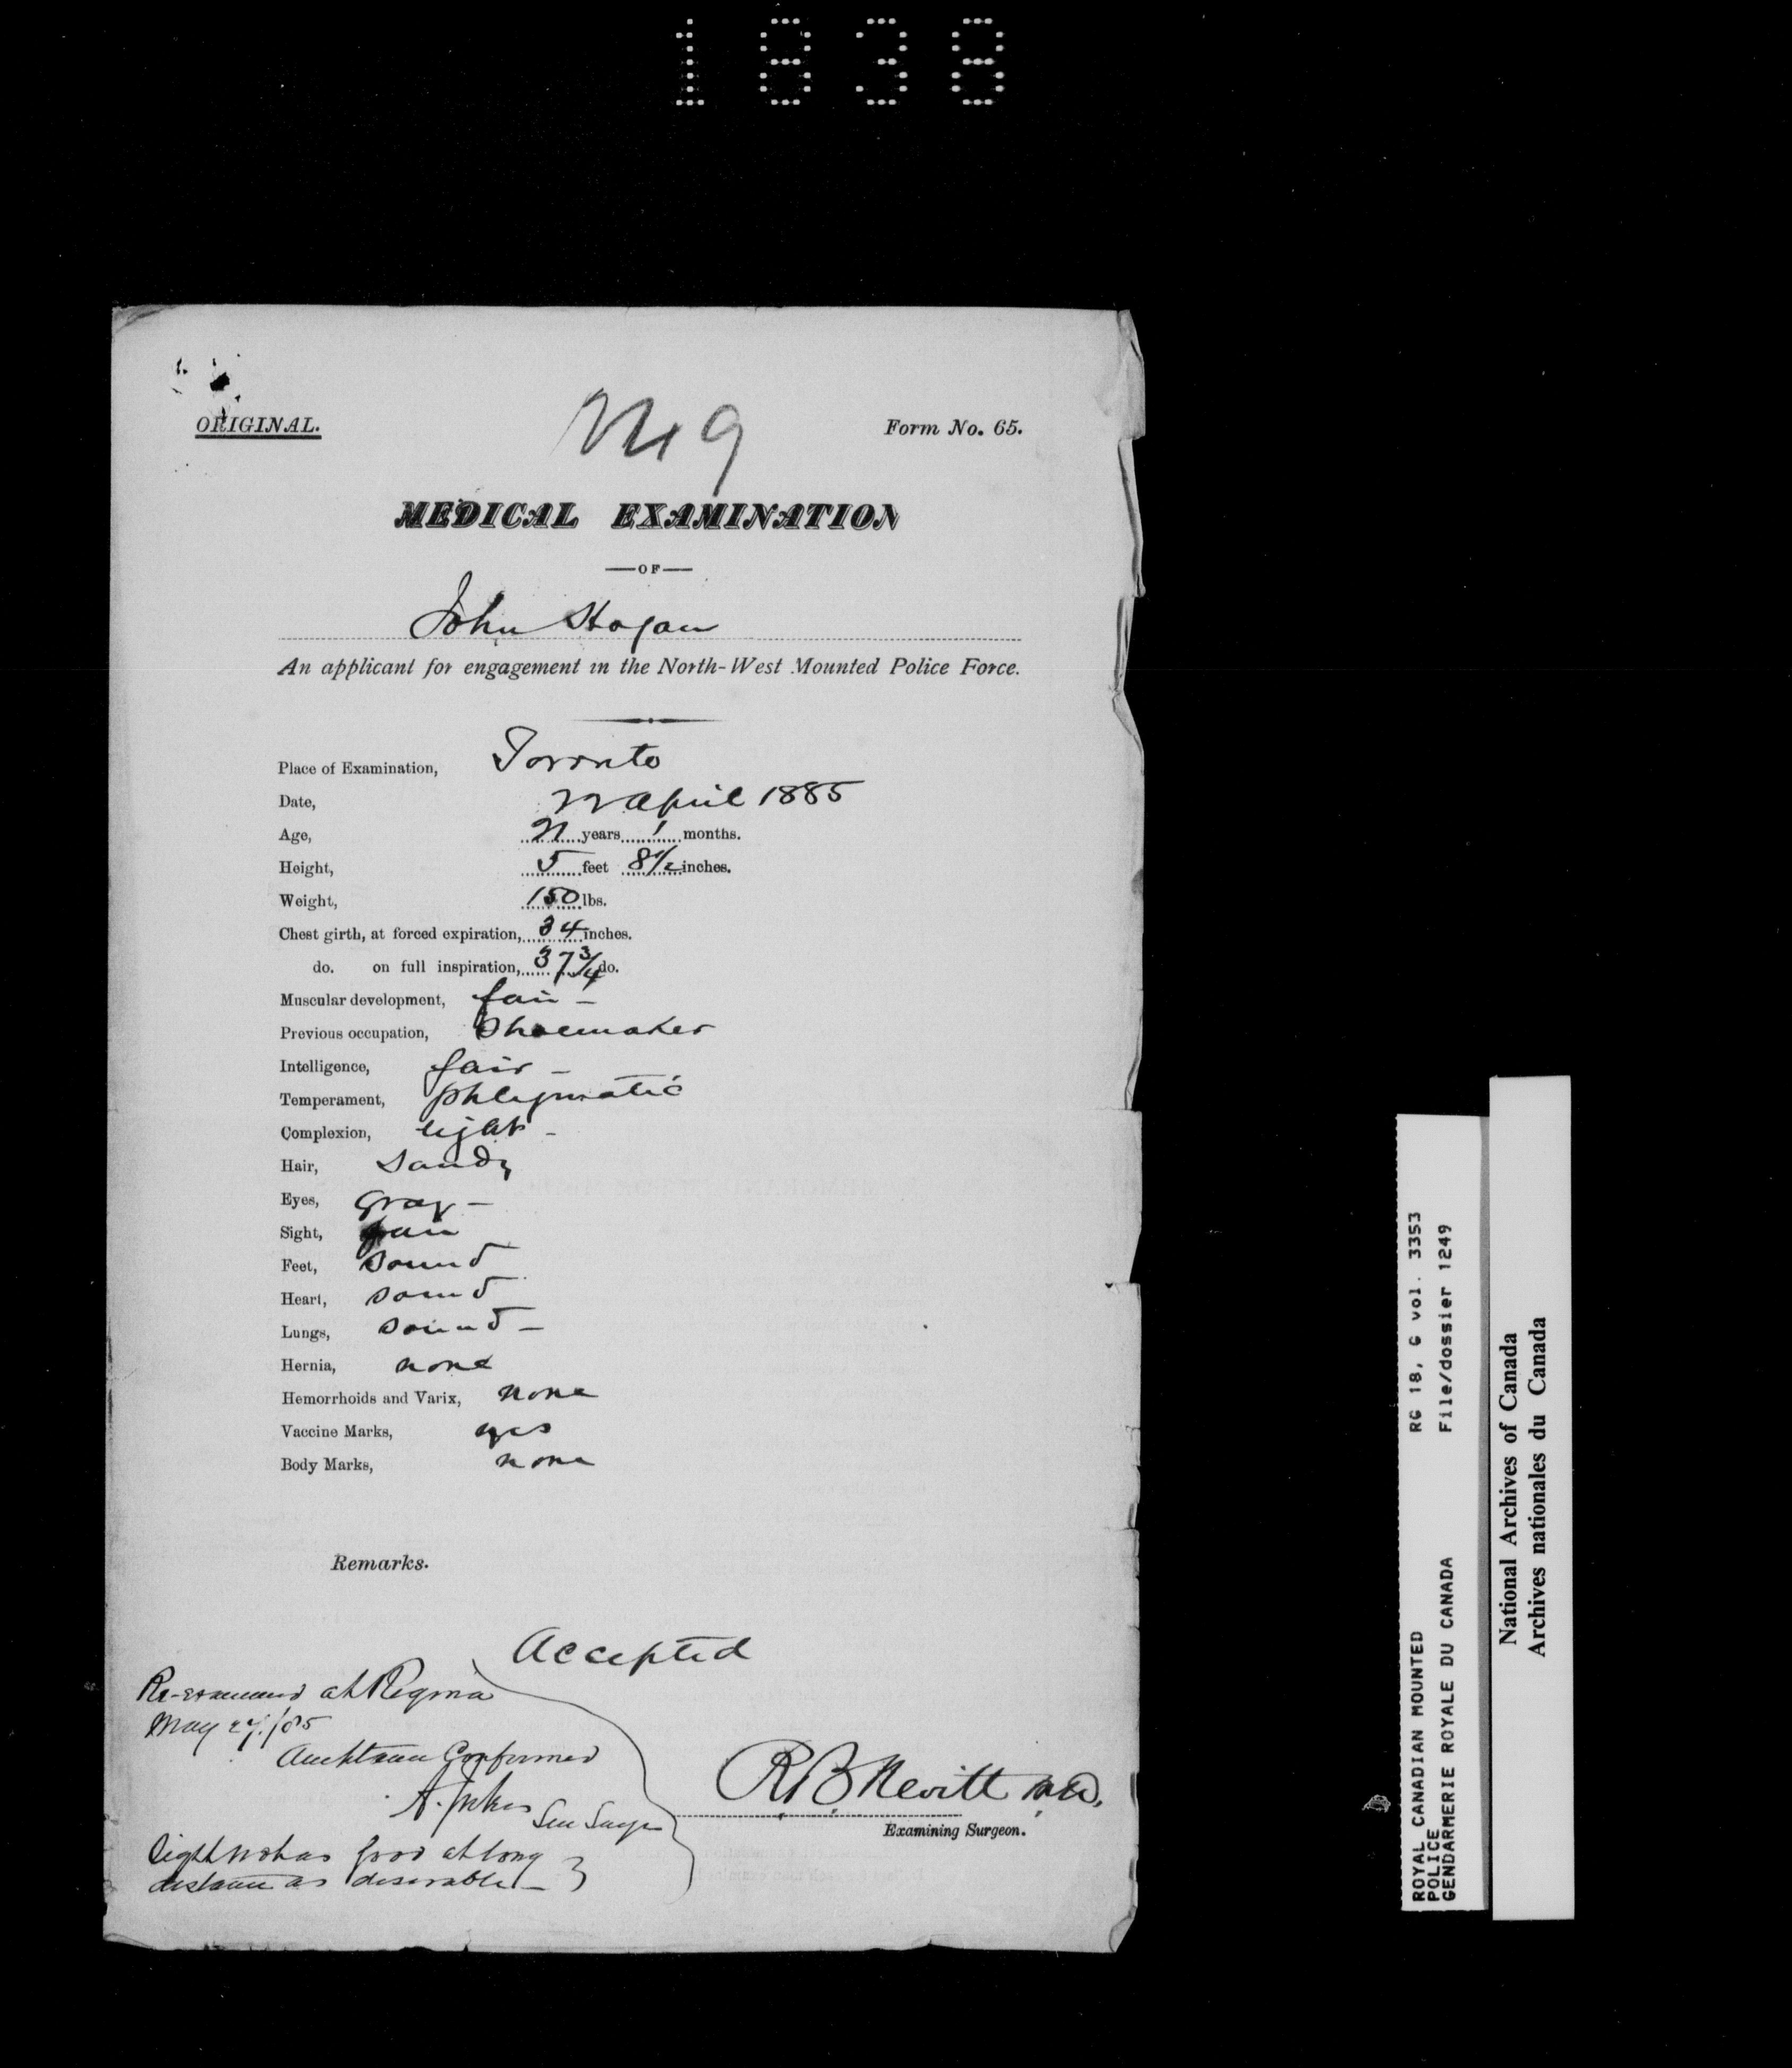 1838
ORIGINAL.
Form No. 65.
MEDICAL EXAMINATION
OF
John Hogan
An applicant for engagement in the North-West Mounted Police Force.
Place of Examination, Toronto
Date, 22 April 1885
Age, 21 years 1 months.
Height, 5 feet 8 1/2 inches.
Weight, 150 lbs.
Chest girth, at forced expiration, 34 inches.
do. on full inspiration, 37 3/4 do.
Muscular development, fair –
Previous occupation, Shoemaker
Intelligence, fair –
Temperament, phlegmatic
Complexion, light –
Hair, Sandy
Eyes, Gray –
Sight, fair
Feet, Sound
Heart, sound
Lungs, sound –
Hernia, none
Hemorrhoids and Varix, none
Vaccine Marks, yes
Body Marks, none
Remarks.
Accepted
Re-examined at Regina
May 27/85
Confirmed
A. Jukes Sen Surgn
R B Nevitt M.D.
Examining Surgeon.
Sight not as good at long
distance as desirable –
ROYAL CANADIAN MOUNTED RG 18, G vol. 3353
POLICE
GENDARMERIE ROYALE DU CANADA File/dossier 1249
National Archives of Canada
Archives nationales du Canada